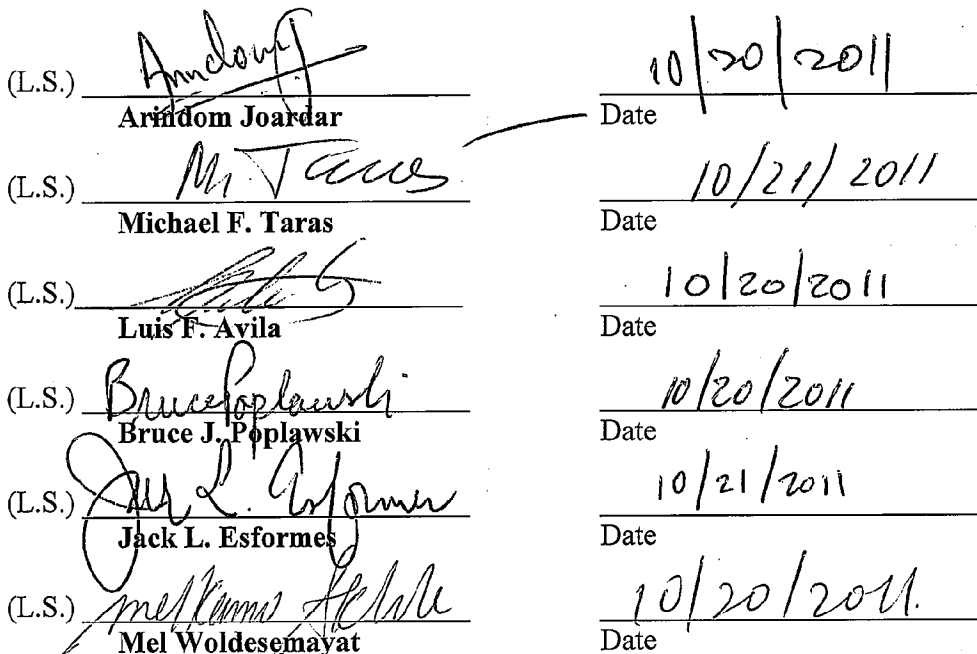 (L.S.) 10/20/2011
Arindom Joardar Date
(L.S.) M. Taras 10/21/2011
Michael F. Taras Date
(L.S.) 10/20/2011
Luis F. Avila Date
(L.S.) Bruce Poplawski 10/20/2011
Bruce J. Poplawski Date
(L.S.) Jack L. Esformes 10/21/2011
Jack L. Esformes Date
(L.S.) 10/20/2011.
Mel Woldesemayat Date